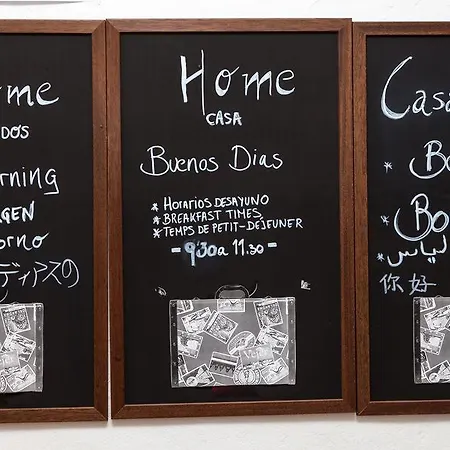 ome
DOS
rning
GEN
orno
ディアスの
Home
CASA
Buenos Dias
* HORARIOS DESAYUNO
* BREAKFAST TIMES,
* TEMPS DE PETIT-DEJEUNER
- 9:30 a 11.30 -
Casa
* Bo
* Bo
*
你好